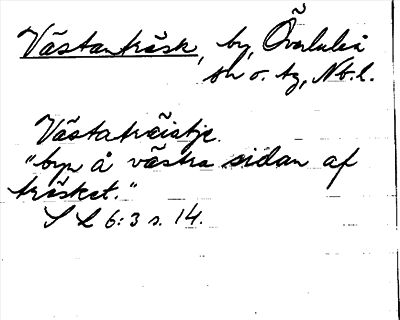 Västanträsk, by, Överluleå
sn o. tg, Nb. l.
Västaträistje.
"byn å västra sidan af
träsket."
S L 6:3 s. 14.